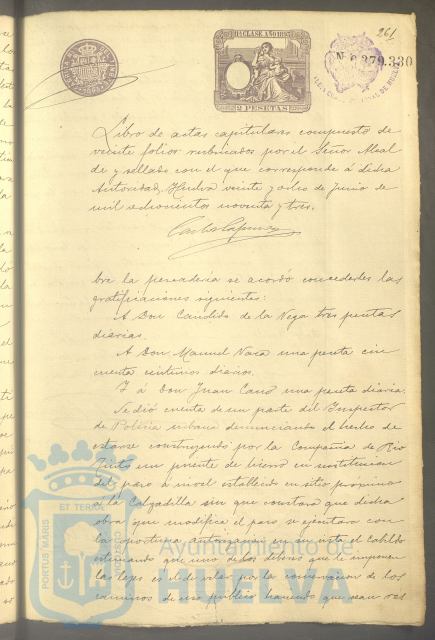 261
11ª CLASE AÑO 1893
Nº 0.379.330
2 PESETAS
Libro de actas capitulares compuesto de
veinte folios rubricados por el Señor Alcal
de y sellado con el que corresponde á dicha
Autoridad, Huelva veinte y ocho de Junio de
mil ochocientos noventa y tres.
bre la pescadería se acordó concederles las
gratificaciones siguientes:
A Don Candido de la Vega tres pesetas
diarias.
A Don Manuel Vara una peseta cin
cuenta centimos diarios.
Y á Don Juan Cano una peseta diaria.
Se dió cuenta de un parte del Inspector
de Policia urbana denunciando el hecho de
estarse construyendo por la Compañia de Rio
Tinto un puente de hierro en sustitucion
del paso á nivel establecido en sitio proximo
á la Calzadilla sin que constara que dicha
obra que modifica el paso se ejecutara con
la oportuna autorizacion en su vista el Cabildo
estimando que uno de los deberes que le imponen
las leyes es el de velar por la conservacion de los
caminos de uso publico haciendo que sean res
PORTUS MARIS ET TERRÆ
Ayuntamiento de
HUELVA